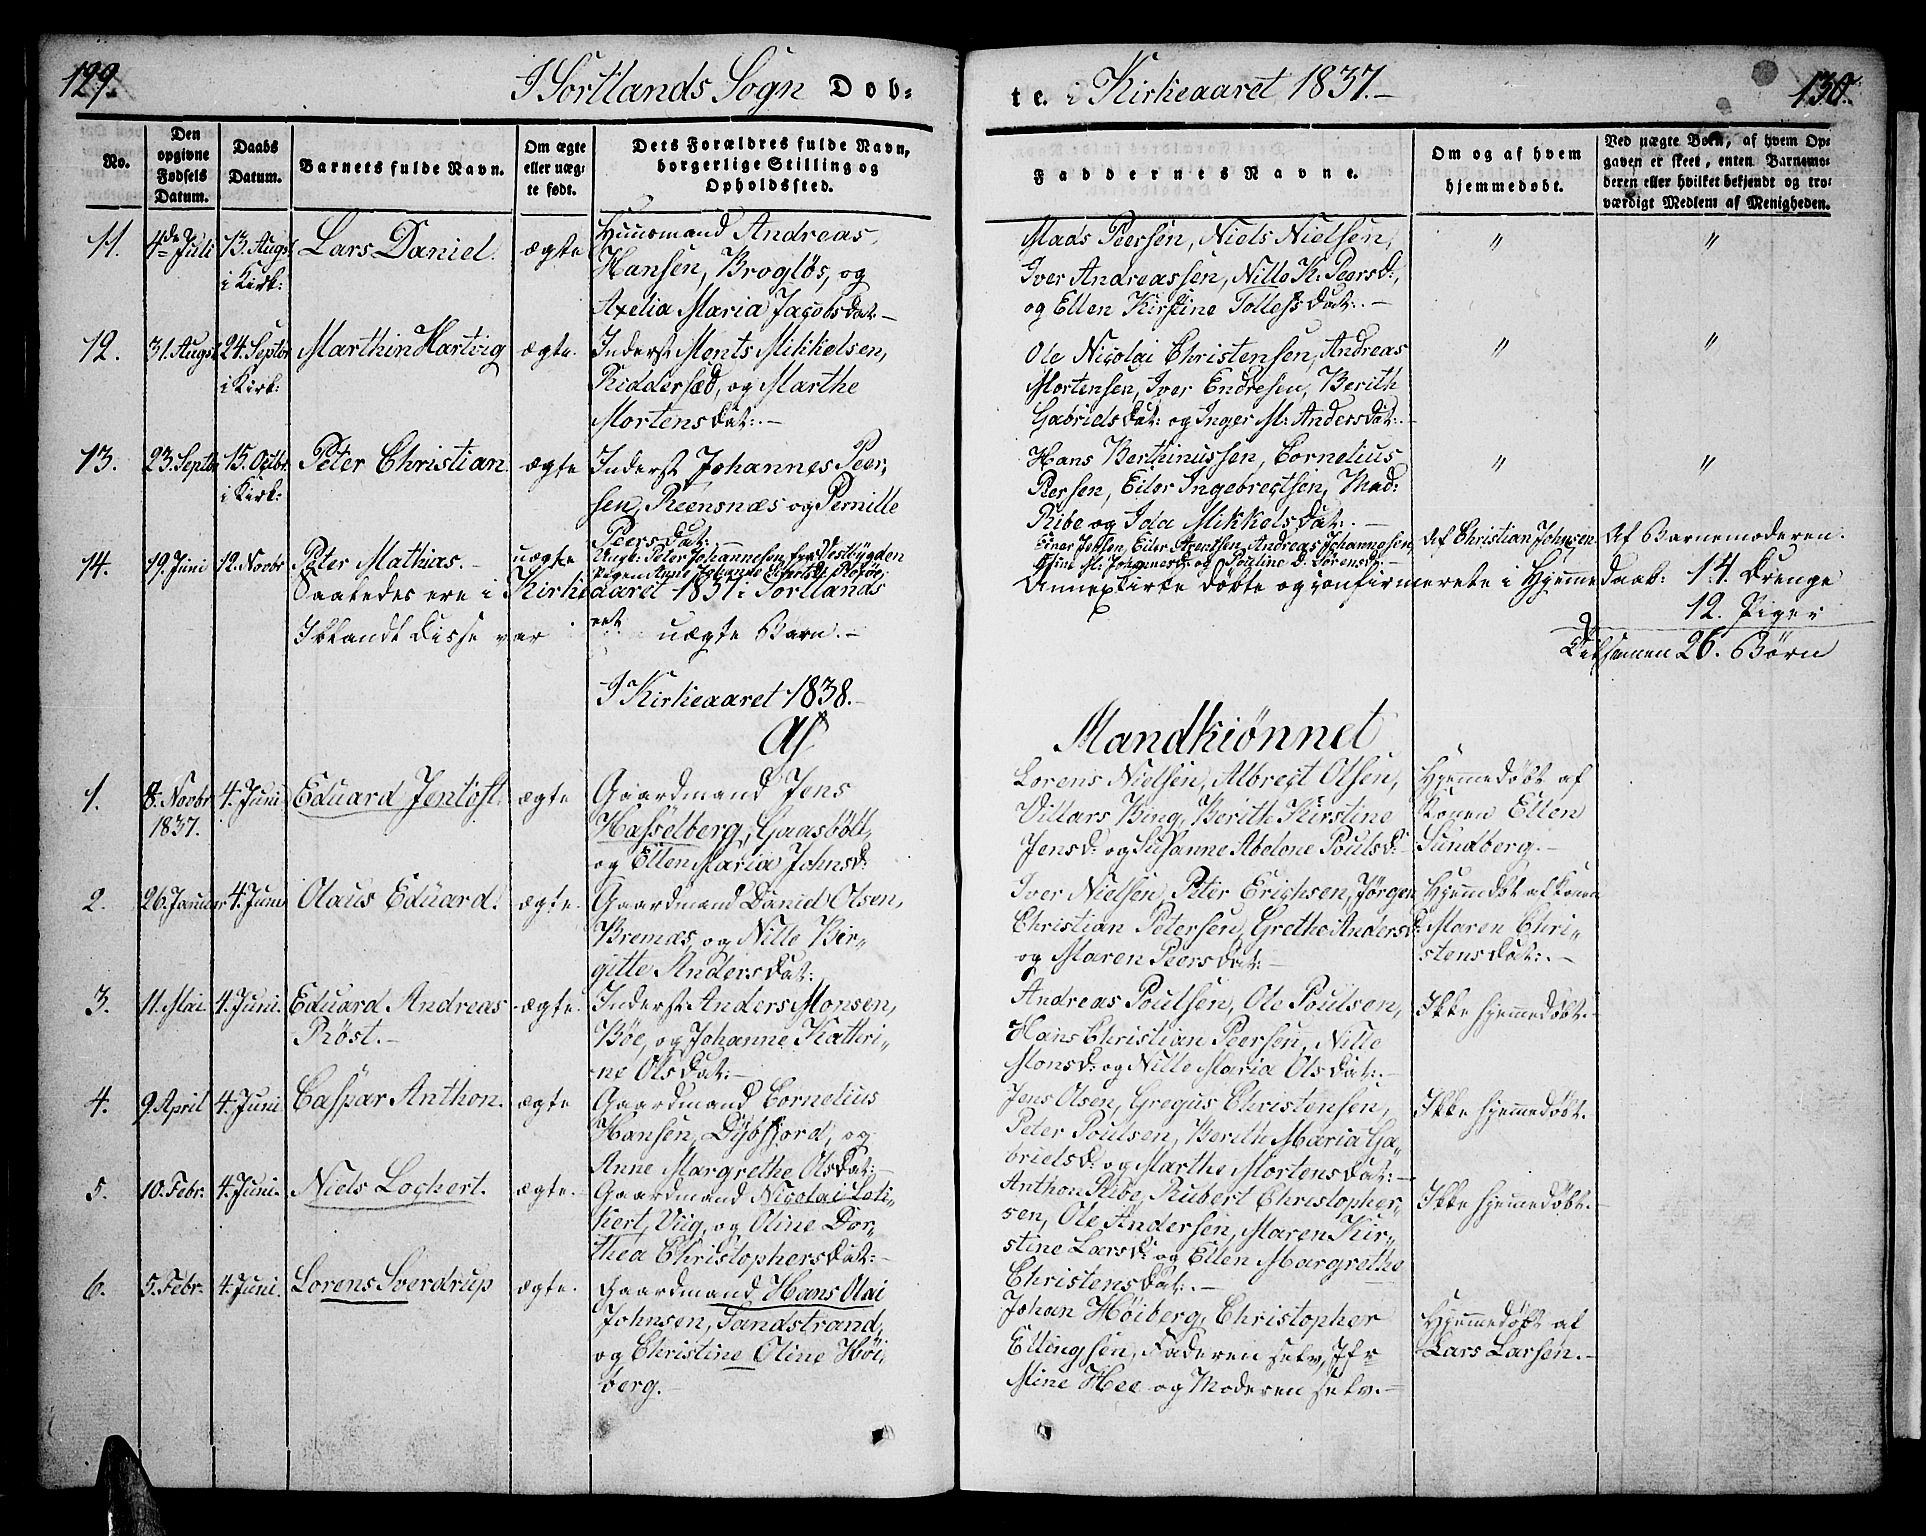 129.
I Sortlands Sogn Döb-
te. i Kirkeaaret 1837.-
130.
No.
Den opgivne Fødsels Datum.
Daabs Datum.
Barnets fulde Navn.
Om ægte eller uæg-te født.
Dets Forældres fulde Navn, borgerlige Stilling og Opholdssted.
Faddernes Navne.
Om og af hvem hjemmedøbt.
Ved uægte Børn, af hvem Op-gaven er skeet, enten Barnemo-deren eller hvilket bekjendt og tro-værdigt Medlem af Menigheden.
11. 4de Juli 13. Augst i Kirk: Lars Daniel. ægte
Huusmand Andreas
Hansen, Brogløs, og
Axelia Maria Jacobsdat:-
Mads Peersen, Niels Nielsen,
Iver Andreassen, Nille K. Peersd:,
og Ellen Kirstine Tollefsdat:.-
" "
12. 31. Augst 24. Septbr i Kirk: Marthin Hartvig ægte.
Inderst Ments Mikkelsen,
Riddersæd, og Marthe
Mortensdat:.-
Ole Nicolai Christensen, Andreas
Mortensen, Iver Endresen, Berith
Gabrielsdat: og Inger M: Andersdat:.-
" "
13. 23. Septbr 15. Octbr i Kirk: Peter Christian. ægte
Inderst Johannes Peer-
sen, Reensnæs og Pernille
Peersdat:
Hans Berthinussen, Cornelius
Peersen, Eiler Ingebregtsen, Mad:
Ribe og Ida Mikkelsdat:.-
" "
14. 19. Juni 12. Novbr Peter Mathias.- uægte
Ungk: Peter Johannesen fra Vesbygden
Pigen Anne Johanna
Einer Jensen, Eiler Arentsen, Andreas Johannesen,
M. Johannesd: og Pauline D. Sörensd:.-
af Christian Johnsen Af Barnemoderen.
Saaledes ere i Kirkeaaret 1837 i Sortlands
Annexkirke döbte og confirmerete i Hjemmedaab: 14 Drenge
12. Piger
Iblandt disse var eet uægte Barn.-
Tilsammen 26. Børn
I Kirkeaaret 1838.-
Af
Mandkiønnet
1. 8. Novbr 1837. 4. Juni Eduard Jentoft. ægte
Gaardmand Jens
Hasselberg, Gaasbött,
og Ellen Maria Johnsd:
Lorens Nielsen, Albregt Olsen,
Villars Bing, Berith Kirstine
Jensd: og Susanne Abelone Poulsd:
Hjemmedöbt af
Konen Ellen
Sundberg.-
2. 26. Januar 4. Juni Olaus Eduard. ægte.
Gaardmand Daniel Olsen,
Bremæs, og Nille Bir-
gitte Andersdat:
Iver Nielsen, Peter Erichsen, Jørgen
Christian Petersen, Grethe Andersd:
og Maren Peersdat:-
Hjemmdöbt af Konen
Maren Chri-
stensdat:.-
3. 11. Mai. 4. Juni. Eduard Andreas ægte.
Röst.-
Inderst Anders Monsen,
Bøe, og Johanne Kathri-
ne Olsdat:-
Andreas Poulsen, Ole Poulsen,
Hans Christian Peersen, Nille
Monsd: og Nille Maria Olsdat:.-
Ikke hjemmedøbt.-
4. 9. April 4. Juni Caspar Anthon. ægte
Gaardmand Cornelius
Hansen, Dybfjord, og
Anne Margrethe Olsdat:-
Jens Olsen, Gregus Christensen,
Peter Poulsen, Berith Maria Ga-
brielsd: og Marthe Mortensdat:-
Ikke hjemmedøbt.
5. 10. Febr. 4. Juni. Niels Lochert. ægte.-
Gaardmand Nicolai Loc-
kert, Viig, og Oline Dor-
thea Christophersdat:-
Anthon Ribe, Rubert Christopher-
sen, Ole Andersen, Maren Kir-
stine Larsd: og Ellen Margrethe
Christensdat:.-
Ikke hjemmedøbt.-
6. 5. Febr. 4. Juni. Lorens Sverdrup ægte.
Gaardmand Hans Olai
Johnsen, Sandstrand,
og Christine Oline Høi-
berg.-
Johan Höiberg, Christopher
Ellingsen, Faderen selv, Jfr
Mine Hee og Moderen selv.-
Hjemmedöbt af
Lars Larsen.-